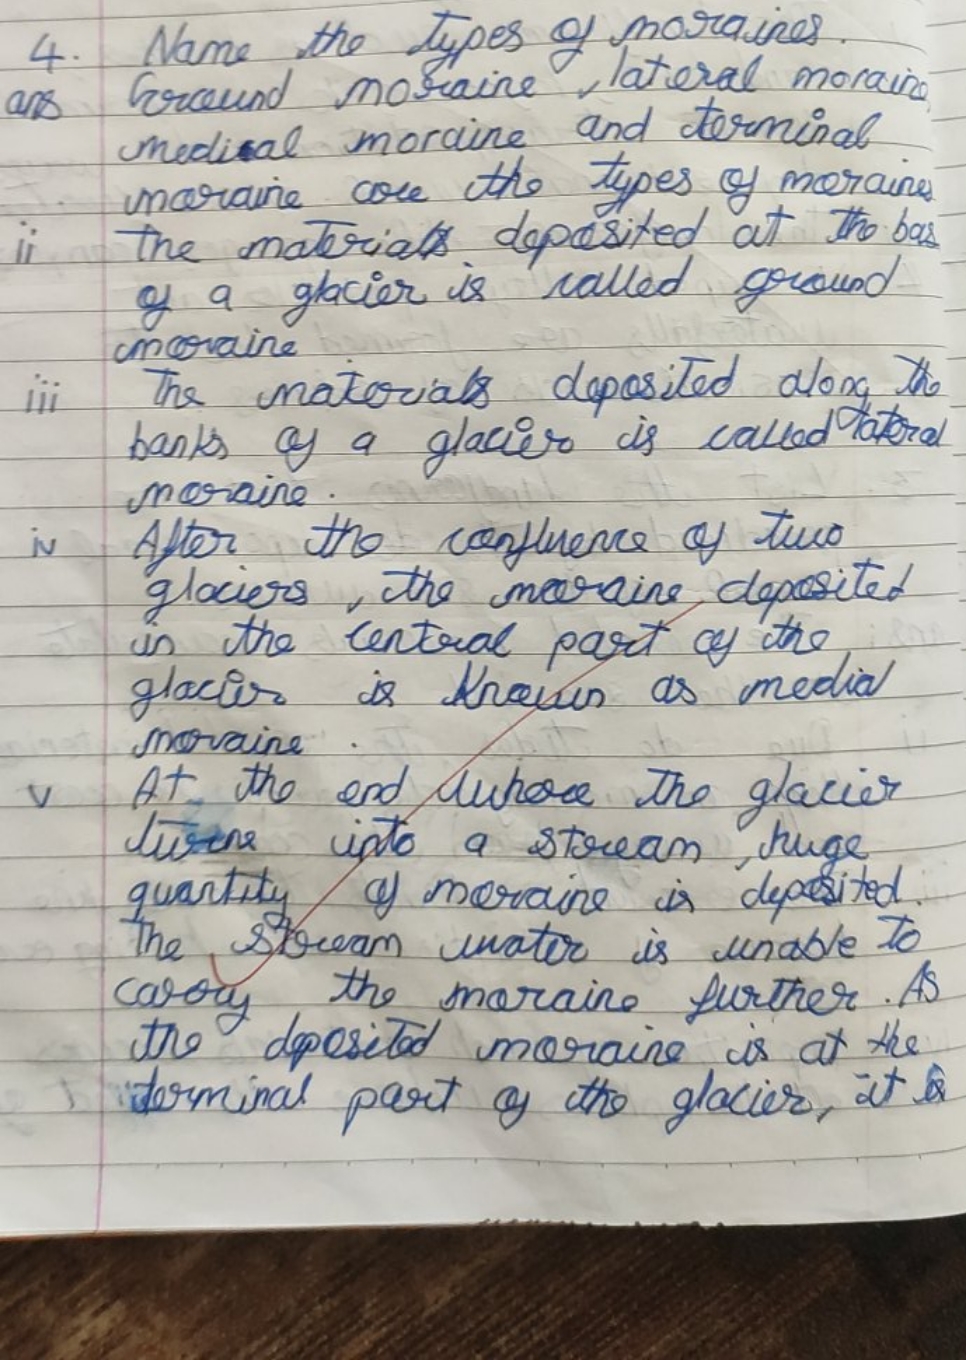 4. Name the types of moraines.
ans Ground moraine, lateral moraine,
medical moraine and terminal
moraine are the types of moraines
ii The materials deposited at the bas
of a glacier is called ground
moraine
iii The materials deposited along the
banks of a glacier is called lateral
moraine.
iv After the confluence of two
glaciers, the moraine deposited
in the central part of the
glacier is known as medial
moraine.
v At the end where the glacier
turns into a stream, huge
quantity of moraine is deposited.
The stream water is unable to
carry the moraine further. As
the deposited moraine is at the
terminal part of the glacier, it is